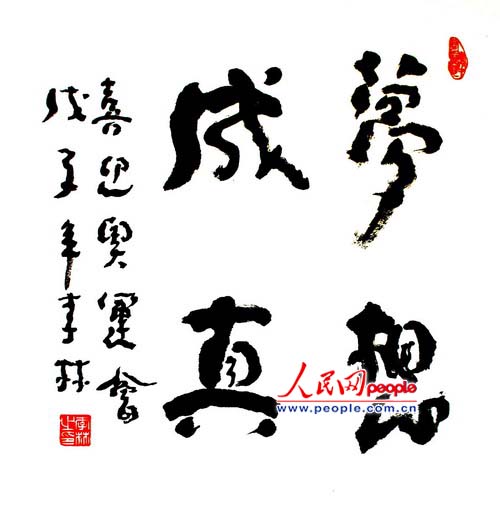 夢想
成真
喜迎奧運會
戊子年李林
人民网
people
www.people.com.cn
李林之印